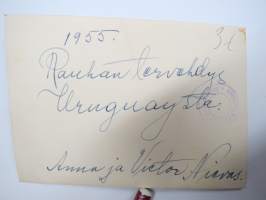 1955.
Rauhan tervehdys
Uruguaysta.
Anna ja Victor